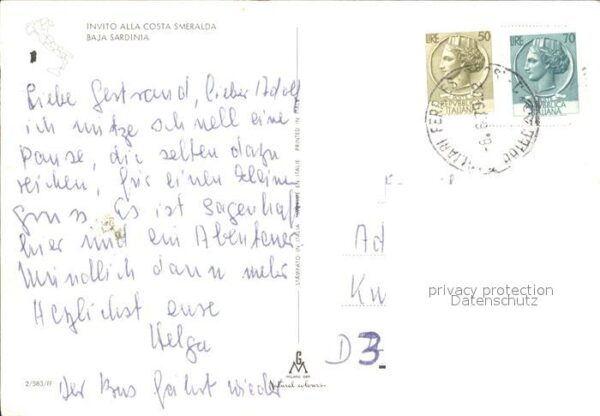 INVITO ALLA COSTA SMERALDA
BAJA SARDINIA
Liebe Gertraud, lieber Adolf
ich nutze schnell eine
Pause, die selten dazu
reichen, für einen kleinen
Gruss. Es ist sagenhaft
hier und ein Abenteuer
Mündlich dann mehr
Herzlichst eure
Helga
Der Bus fährt wieder
2/583/FF
STAMPATO IN ITALIA
PRINTED IN
MILANO
Natural colours
LIRE 50
REPUBBLICA
ITALIANA
LIRE 70
REPUBBLICA
ITALIANA
CAGLIARI FERR
Ad
Kn
D 3
privacy protection
Datenschutz